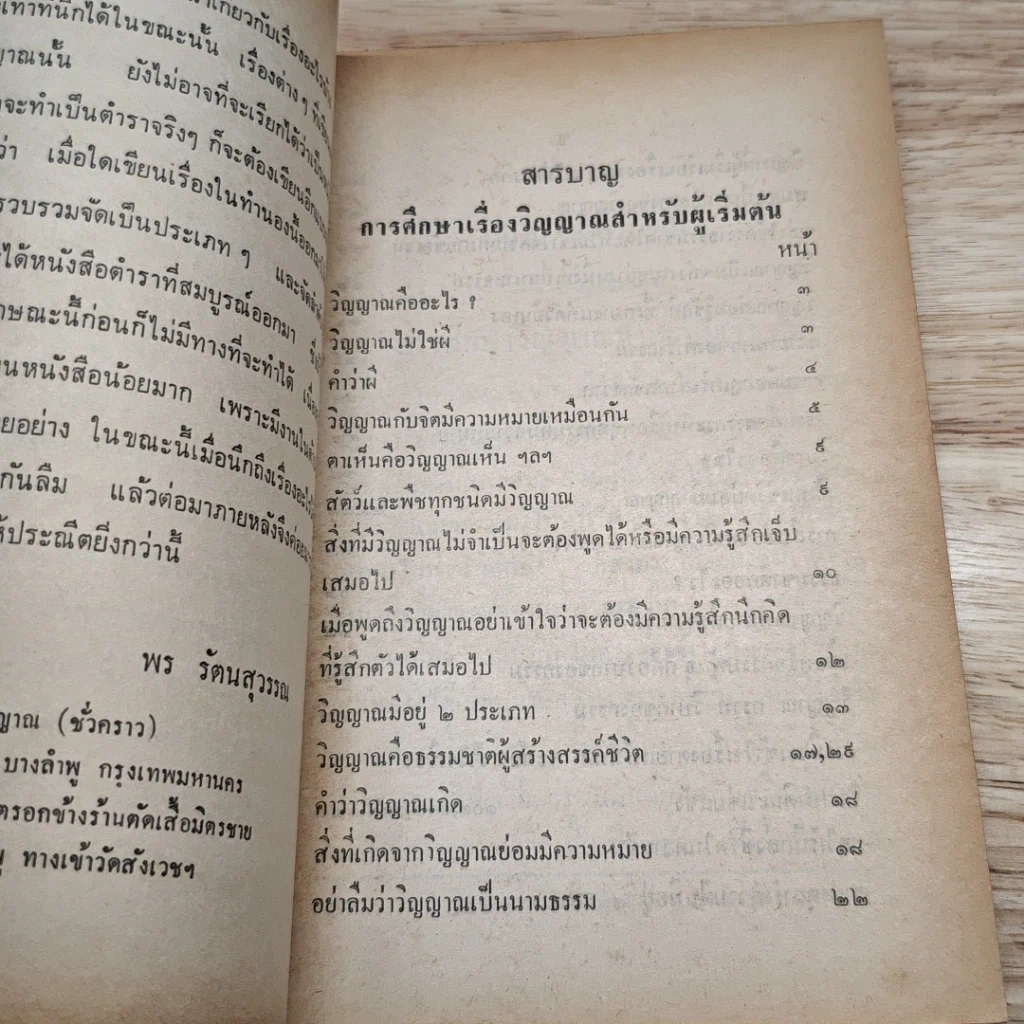 เกี่ยวกับเรื่องอะไร
เท่าที่นึกได้ในขณะนั้น เรื่องต่างๆ
ญาณนั้น ยังไม่อาจที่จะเรียกได้ว่าเป็น
จะทำเป็นตำราจริงๆ ก็จะต้องเขียนอีก
ว่า เมื่อใดเขียนเรื่องในทำนองนี้ออกมา
รวบรวมจัดเป็นประเภท ๆ และจัด
ได้หนังสือตำราที่สมบูรณ์ออกมา
ษณะนี้ก่อนก็ไม่มีทางที่จะทำได้
นหนังสือน้อยมาก เพราะมีงานใน
ยอย่าง ในขณะนี้เมื่อนึกถึงเรื่องอะไร
กันลืม แล้วต่อมาภายหลังจึงค่อย
ห้ประณีตยิ่งกว่านี้
พร รัตนสุวรรณ
ญาณ (ชั่วคราว)
บางลำพู กรุงเทพมหานคร
ตรอกข้างร้านตัดเสื้อมิตรชาย
พู ทางเข้าวัดสังเวชฯ
สารบาญ
การศึกษาเรื่องวิญญาณสำหรับผู้เริ่มต้น
หน้า
วิญญาณคืออะไร ? ๓
วิญญาณไม่ใช่ผี ๓
คำว่าผี ๔
วิญญาณกับจิตมีความหมายเหมือนกัน ๕
ตาเห็นคือวิญญาณเห็น ฯลฯ ๙
สัตว์และพืชทุกชนิดมีวิญญาณ ๙
สิ่งที่มีวิญญาณไม่จำเป็นจะต้องพูดได้หรือมีความรู้สึกเจ็บ
เสมอไป ๑๐
เมื่อพูดถึงวิญญาณอย่าเข้าใจว่าจะต้องมีความรู้สึกนึกคิด
ที่รู้สึกตัวได้เสมอไป ๑๒
วิญญาณมีอยู่ ๒ ประเภท ๑๓
วิญญาณคือธรรมชาติผู้สร้างสรรค์ชีวิต ๑๗,๒๙
คำว่าวิญญาณเกิด ๑๘
สิ่งที่เกิดจากวิญญาณย่อมมีความหมาย ๑๘
อย่าลืมว่าวิญญาณเป็นนามธรรม ๒๒